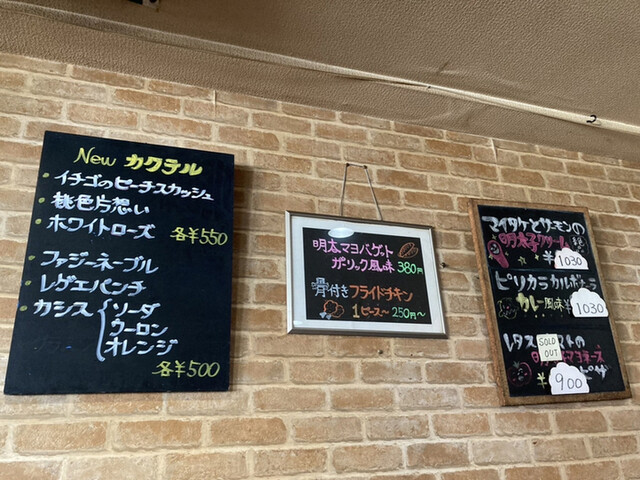 New カクテル
・イチゴのピーチスカッシュ
・桃色片想い
・ホワイトローズ 各¥550
・ファジーネーブル
・レゲエパンチ
・カシス ソーダ
ウーロン
オレンジ
各¥500
明太マヨバゲット
ガーリック風味 380円
骨付きフライドチキン
1ピース〜 250円〜
マイタケとサーモンの
明太子クリーム
¥1030
ピリカラカルボナーラ
カレー風味 ¥1030
レタストマトの
SOLD OUT
明太マヨネーズ
¥900 ピザ